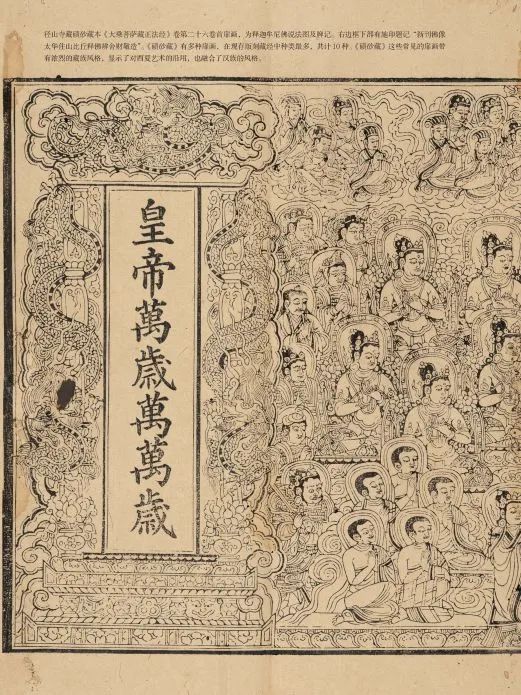 径山寺藏碛砂藏本《大乘菩萨藏正法经》卷第二十六卷首扉画，为释迦牟尼佛说法图及牌记。右边框下部有施印题记“新刊佛像
太华住山比丘释佛辨舍财敬造”。《碛砂藏》有多种扉画，在现存版刻藏经中种类最多，共计 10 种。《碛砂藏》这些常见的扉画带
有浓烈的藏族风格，显示了对西夏艺术的沿用，也融合了汉族的风格。
皇帝萬歲萬萬歲